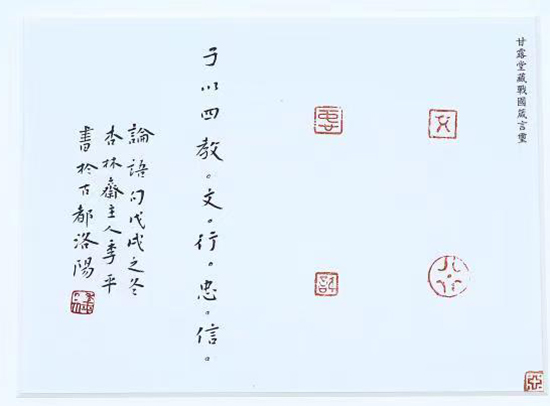 甘露堂藏戰國箴言璽
子以四教。文。行。忠。信。
論語句戊戌之冬
杏林齋主人季平
書於古都洛陽